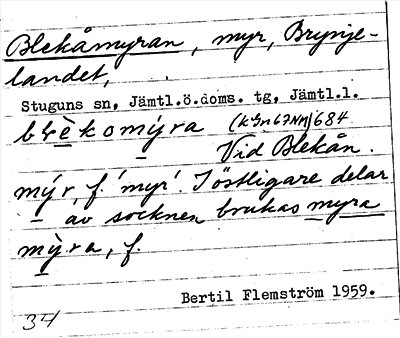 Blekåmyran, myr, Brynje-
landet,
Stuguns sn, Jämtl.ö.doms. tg, Jämtl.l.
blèkomýra (kSn67NM)684
Vid Blekån.
mýr, f. 'myr'. I östligare delar
av socknen brukas myra
mỳra, f.
Bertil Flemström 1959.
34